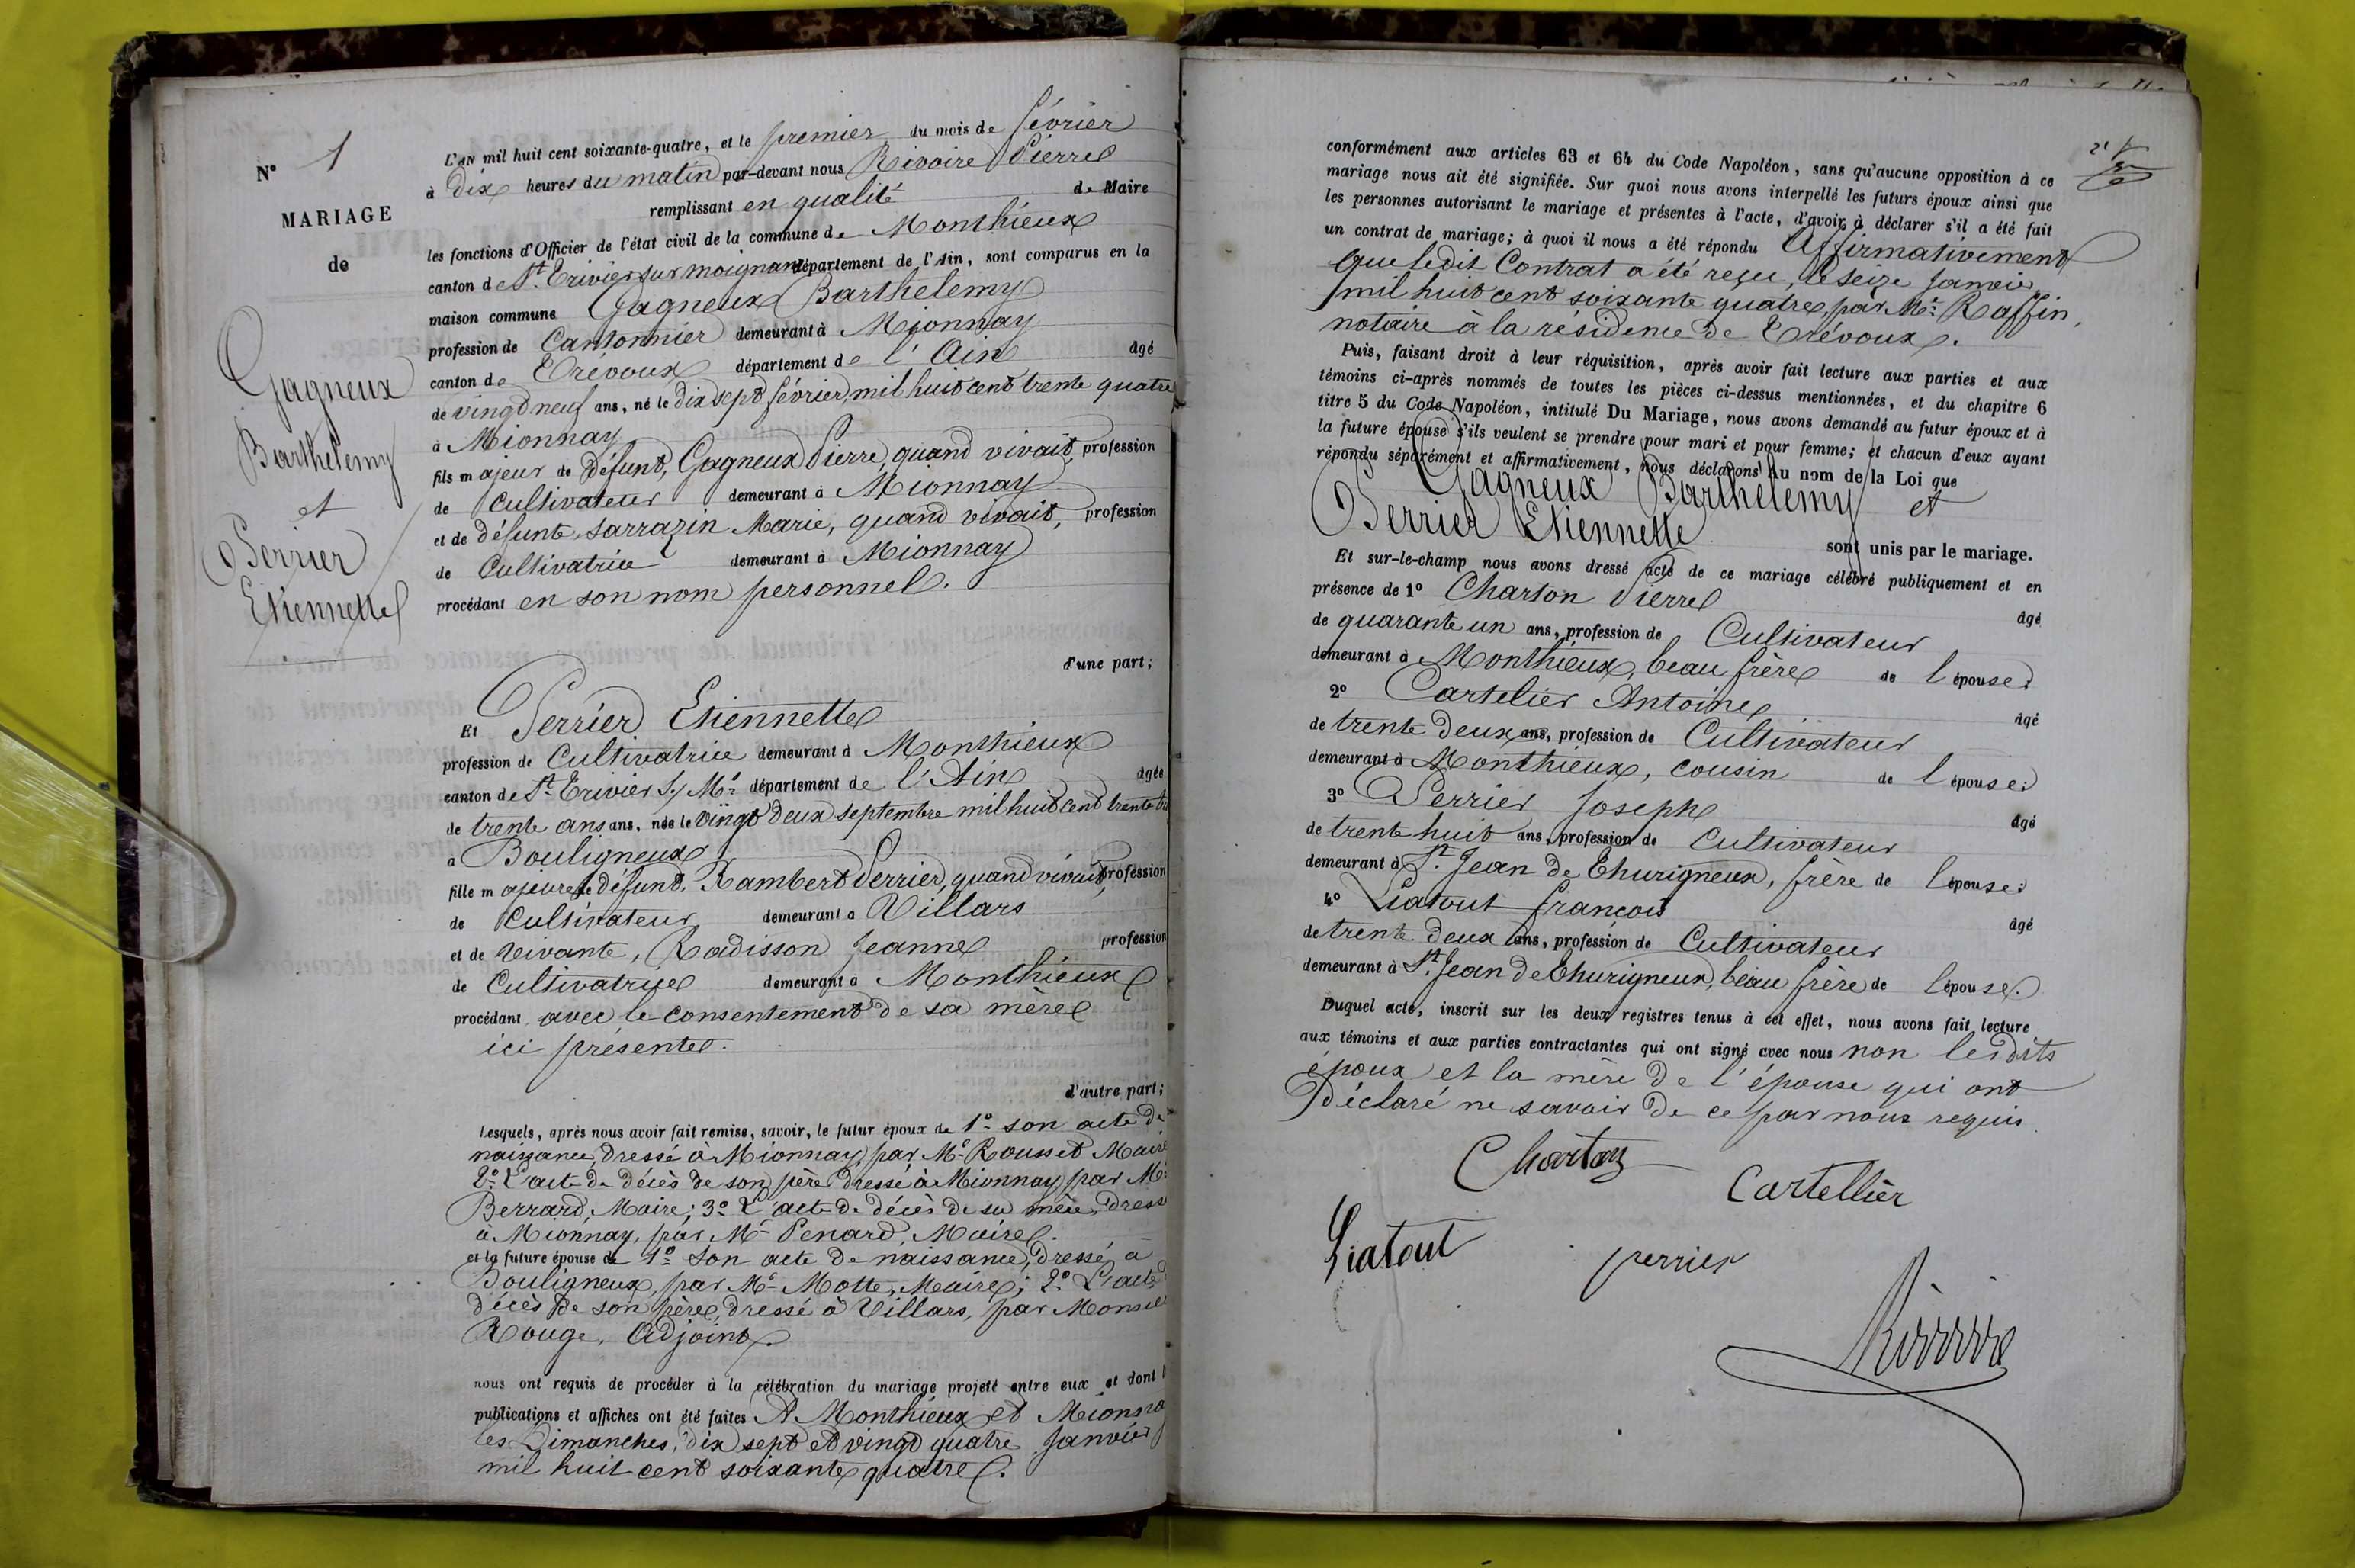 N° 1
MARIAGE
de
Gagneux
Barthelemy
et
Perrier
Etiennette
L'AN mil huit cent soixante-quatre, et le premier du mois de février
à dix heures du matin par-devant nous Rivoire Pierre
remplissant en qualité de Maire
les fonctions d'Officier de l'état civil de la commune de Monthieux
canton de St. Trivier sur moignans département de l'Ain, sont comparus en la
maison commune Gagneux Barthelemy
profession de Cantonnier demeurant à Mionnay
canton de Trévoux département de l'Ain âgé
de vingt neuf ans, né le dix sept février mil huit cent trente quatre
à Mionnay
fils majeur de défunt, Gagneux Pierre, quand vivait, profession
de Cultivateur demeurant à Mionnay
et de défunte Sarrazin Marie, quand vivait, profession
de Cultivatrice demeurant à Mionnay
procédant en son nom personnel.
d'une part;
Et Perrier Etiennette
profession de Cultivatrice demeurant à Monthieux
canton de St. Trivier S/ Ms. département de l'Ain âgée
de trente ans ans, née le vingt deux septembre mil huit cent trente
à Bouligneux
fille majeure de défunt, Rambert Perrier, quand vivait, profession
de Cultivateur demeurant à Villars
et de vivante, Radisson Jeanne profession
de Cultivatrice demeurant à Monthieux
procédant avec le consentement de sa mère
ici présente.
d'autre part;
Lesquels, après nous avoir fait remise, savoir, le futur époux de 1° son acte de
naissance, dressé à Mionnay, par Mr. Rousset Maire
2° L'acte de décès de son père dressé à Mionnay par Mr.
Berrard, Maire; 3° L'acte de décès de sa mère, dressé
à Mionnay, par Mr Penard, Maire.
et la future épouse de 1° Son acte de naissance, dressé à
Bouligneux, par Mr. Motte, Maire; 2° L'acte de
décès de son père, dressé à Villars, par Monsieur
Rouge, Adjoint.
nous ont requis de procéder à la célébration du mariage projeté entre eux et dont
publications et affiches ont été faites A Monthieux et Mionnay
les Dimanches, dix sept et vingt quatre Janvier
mil huit cent soixante quatre.
conformément aux articles 63 et 64 du Code Napoléon, sans qu'aucune opposition à ce
mariage nous ait été signifiée. Sur quoi nous avons interpellé les futurs époux ainsi que
les personnes autorisant le mariage et présentes à l'acte, d'avoir à déclarer s'il a été fait
un contrat de mariage; à quoi il nous a été répondu Affirmativement
que ledit Contrat a été reçu, le seize Janvier
mil huit cent soixante quatre, par Me. Raffin,
notaire à la résidence de Trévoux.
Puis, faisant droit à leur réquisition, après avoir fait lecture aux parties et aux
témoins ci-après nommés de toutes les pièces ci-dessus mentionnées, et du chapitre 6
titre 5 du Code Napoléon, intitulé Du Mariage, nous avons demandé au futur époux et à
la future épouse s'ils veulent se prendre pour mari et pour femme; et chacun d'eux ayant
répondu séparément et affirmativement, nous déclarons Au nom de la Loi que
Gagneux Barthelemy et
Perrier Etiennette
sont unis par le mariage.
Et sur-le-champ nous avons dressé acte de ce mariage célébré publiquement et en
présence de 1° Charton Pierre âgé
de quarante un ans, profession de Cultivateur
demeurant à Monthieux, beau frère de l'épouse;
2° Cartelier Antoine âgé
de trente deux ans, profession de Cultivateur
demeurant à Monthieux, cousin de l'épouse;
3° Perrier Joseph âgé
de trente huit ans, profession de Cultivateur
demeurant à St. Jean de Thurigneux, frère de l'épouse;
4° Liatout françois âgé
de trente deux ans, profession de Cultivateur
demeurant à St. Jean de Thurigneux, beau frère de l'épouse.
Duquel acte, inscrit sur les deux registres tenus à cet effet, nous avons fait lecture
aux témoins et aux parties contractantes qui ont signé avec nous non lesdits
époux et la mère de l'épouse qui ont
déclaré ne savoir de ce par nous requis.
Charton
Cartellier
Liatout
perrier
Rivoire